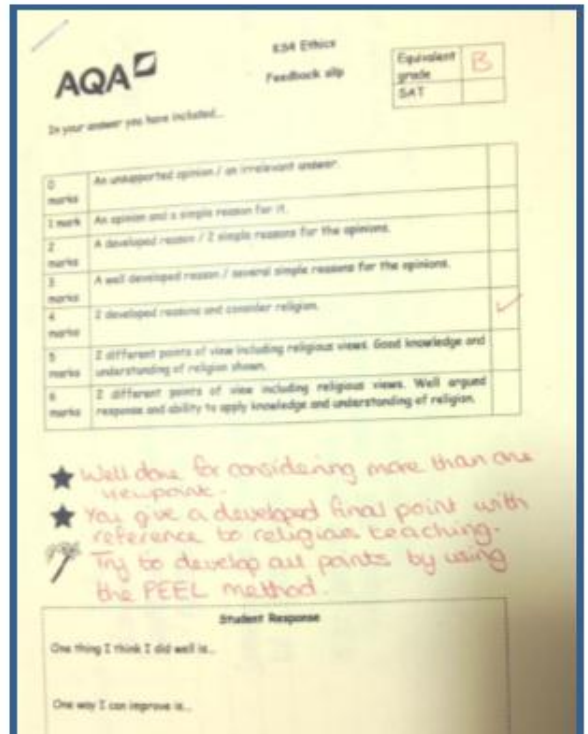 AQA
KS4 Ethics
Feedback slip
Equivalent grade B
SAT
In your answer you have included...
0 marks An unsupported opinion / an irrelevant answer.
1 mark An opinion and a simple reason for it.
2 marks A developed reason / 2 simple reasons for the opinions.
3 marks A well developed reason / several simple reasons for the opinions.
4 marks 2 developed reasons and consider religion.
5 marks 2 different points of view including religious views. Good knowledge and
understanding of religion shown.
6 marks 2 different points of view including religious views. Well argued
response and ability to apply knowledge and understanding of religion.
Well done for considering more than one
viewpoint.
You give a developed final point with
reference to religious teaching.
Try to develop all points by using
the PEEL method.
Student Response
One thing I think I did well is...
One way I can improve is...